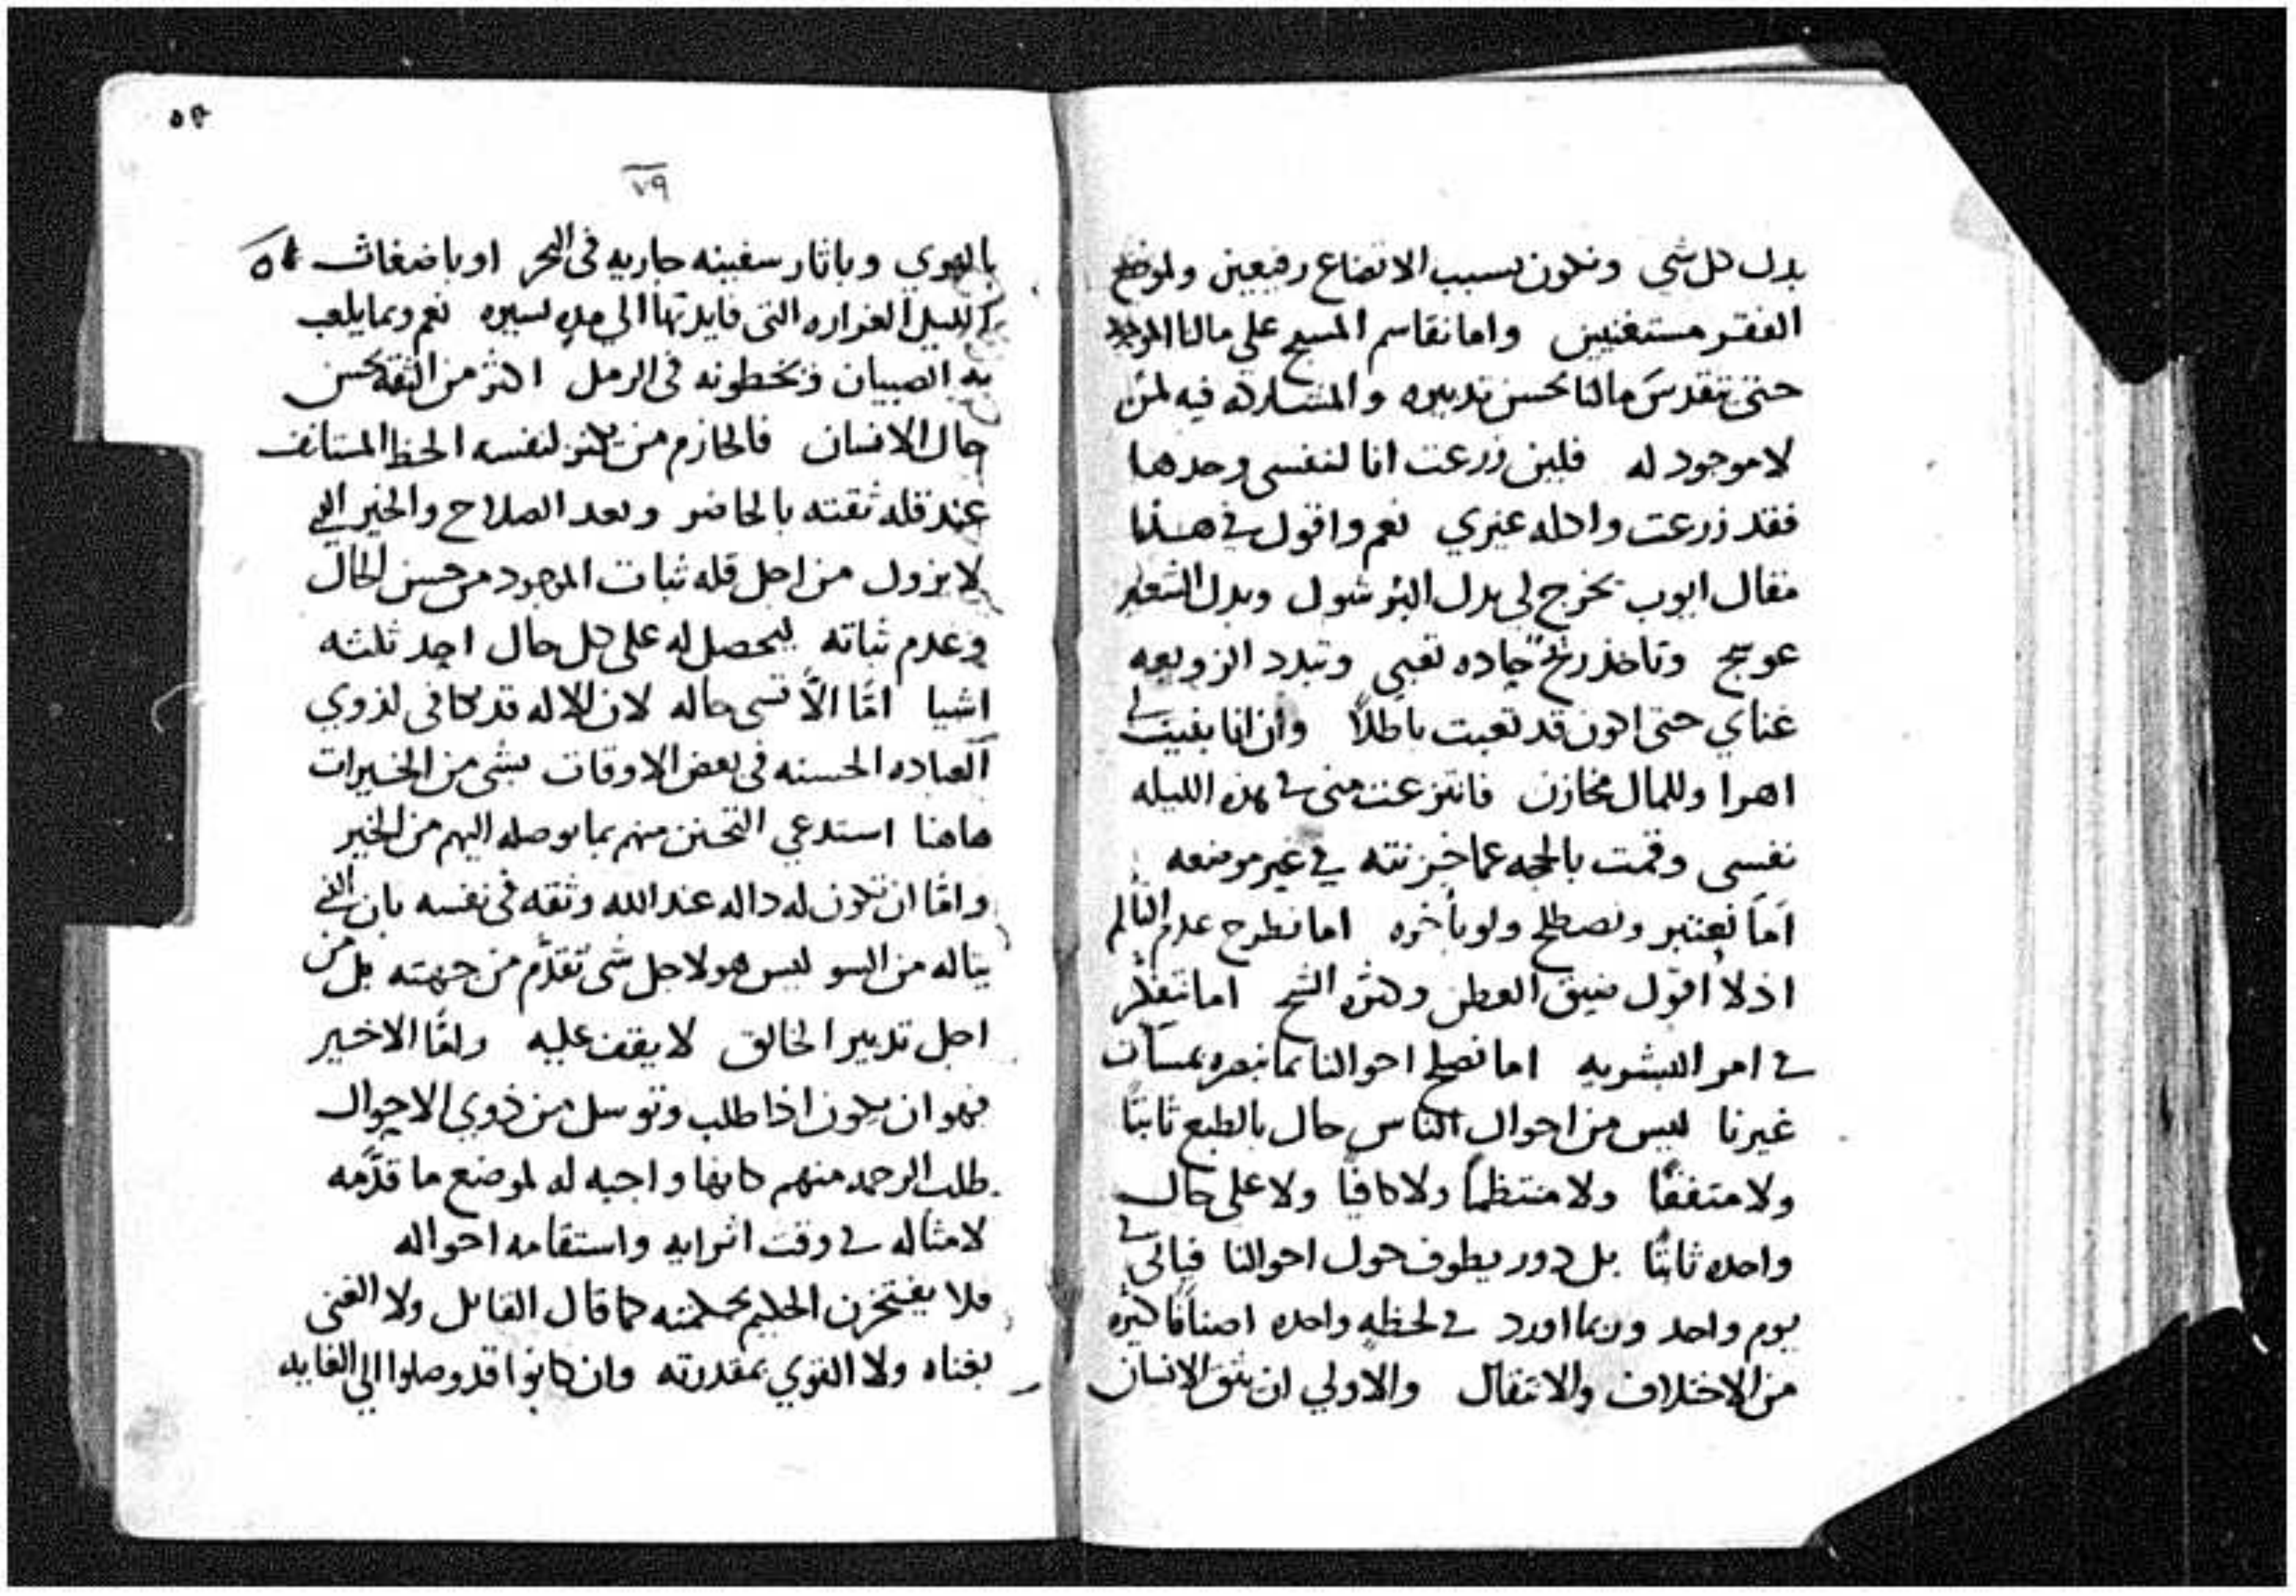 بدل كل شي ونكون بسبب الاتضاع رفيعين ولموضع
الفقر مستغنيين واما نقاسم المسيح علي مالنا الموجود
حتى تتقدس مالنا بحسن تدبيره والمشاركه فيه لمن
لا موجود له فلين زرعت انا لنفسي وحدها
فقد زرعت واكله غيري نعم واقول في هذا
مقال ايوب تخرج لي بدل البر شوك وبدل الشعير
عوسج وتاخذ ريح حاده تعبي وتبدد الزوبعه
غناي حتى اكون قد تعبت باطلاً وان انا بنيت لي
اهرا وللمال مخازن فانتزعت مني في هذه الليله
نفسي وقمت بالحجه عما خزنته في غير موضعه
اما نعتبر ونصطلح ولو باخره اما نطرح عدم التالم
اذ لا اقول ضيق العطن وكثره الشح اما نتفكر
في امر البشريه اما نصلح احوالنا بما نبصره بمسآت
غيرنا ليس من احوال الناس حال بالطبع ثابتاً
ولا متفقاً ولا منتظماً ولا كافياً ولا على حال
واحده ثابتاً بل دور يطوف حول احوالنا فياتي في
يوم واحد وربما اورد في لحظه واحده اصنافاً كثيره
من الاختلاف والانتقال والاولي ان يثق الانسان
٥٣
٧٩
بالهوي وباثار سفينه جاريه في البحر او باضغاث
الليل الغراره التي فايدتها الي مده يسيره نعم وبما يلعب
به الصبيان ويخطونه في الرمل اكثر من الثقه بحسن
حال الانسان فالحازم من كنز لنفسه الحظ المستانف
عند قله ثقته بالحاضر وبعد الصلاح والخير الذي
لا يزول من اجل قله ثبات الموجود من حسن الحال
وعدم ثباته ليحصل له على كل حال احد ثلثه
اشيا امّا الاّ تسي حاله لان الاله قد يكافي لذوي
العباده الحسنه في بعض الاوقات بشي من الخيرات
هاهنا استدعي التحنن منهم بما يوصله اليهم من الخير
وامّا ان تكون له داله عند الله وثقه في نفسه بان الذي
يناله من السو ليس هو لاجل شي تقدّم من جهته بل من
اجل تدبير الخالق لا يقف عليه وامّا الاخير
فهو ان يكون اذا طلب وتوسل من ذوي الاحوال
طلب الرحمه منهم كانها واجبه له لموضع ما قدّمه
لامثاله في وقت اثرايه واستقامه احواله
فلا يفتخرن الحكيم بحكمته كما قال القايل ولا الغني
بغناه ولا القوي بمقدرته وان كانوا قد وصلوا الي الغايه